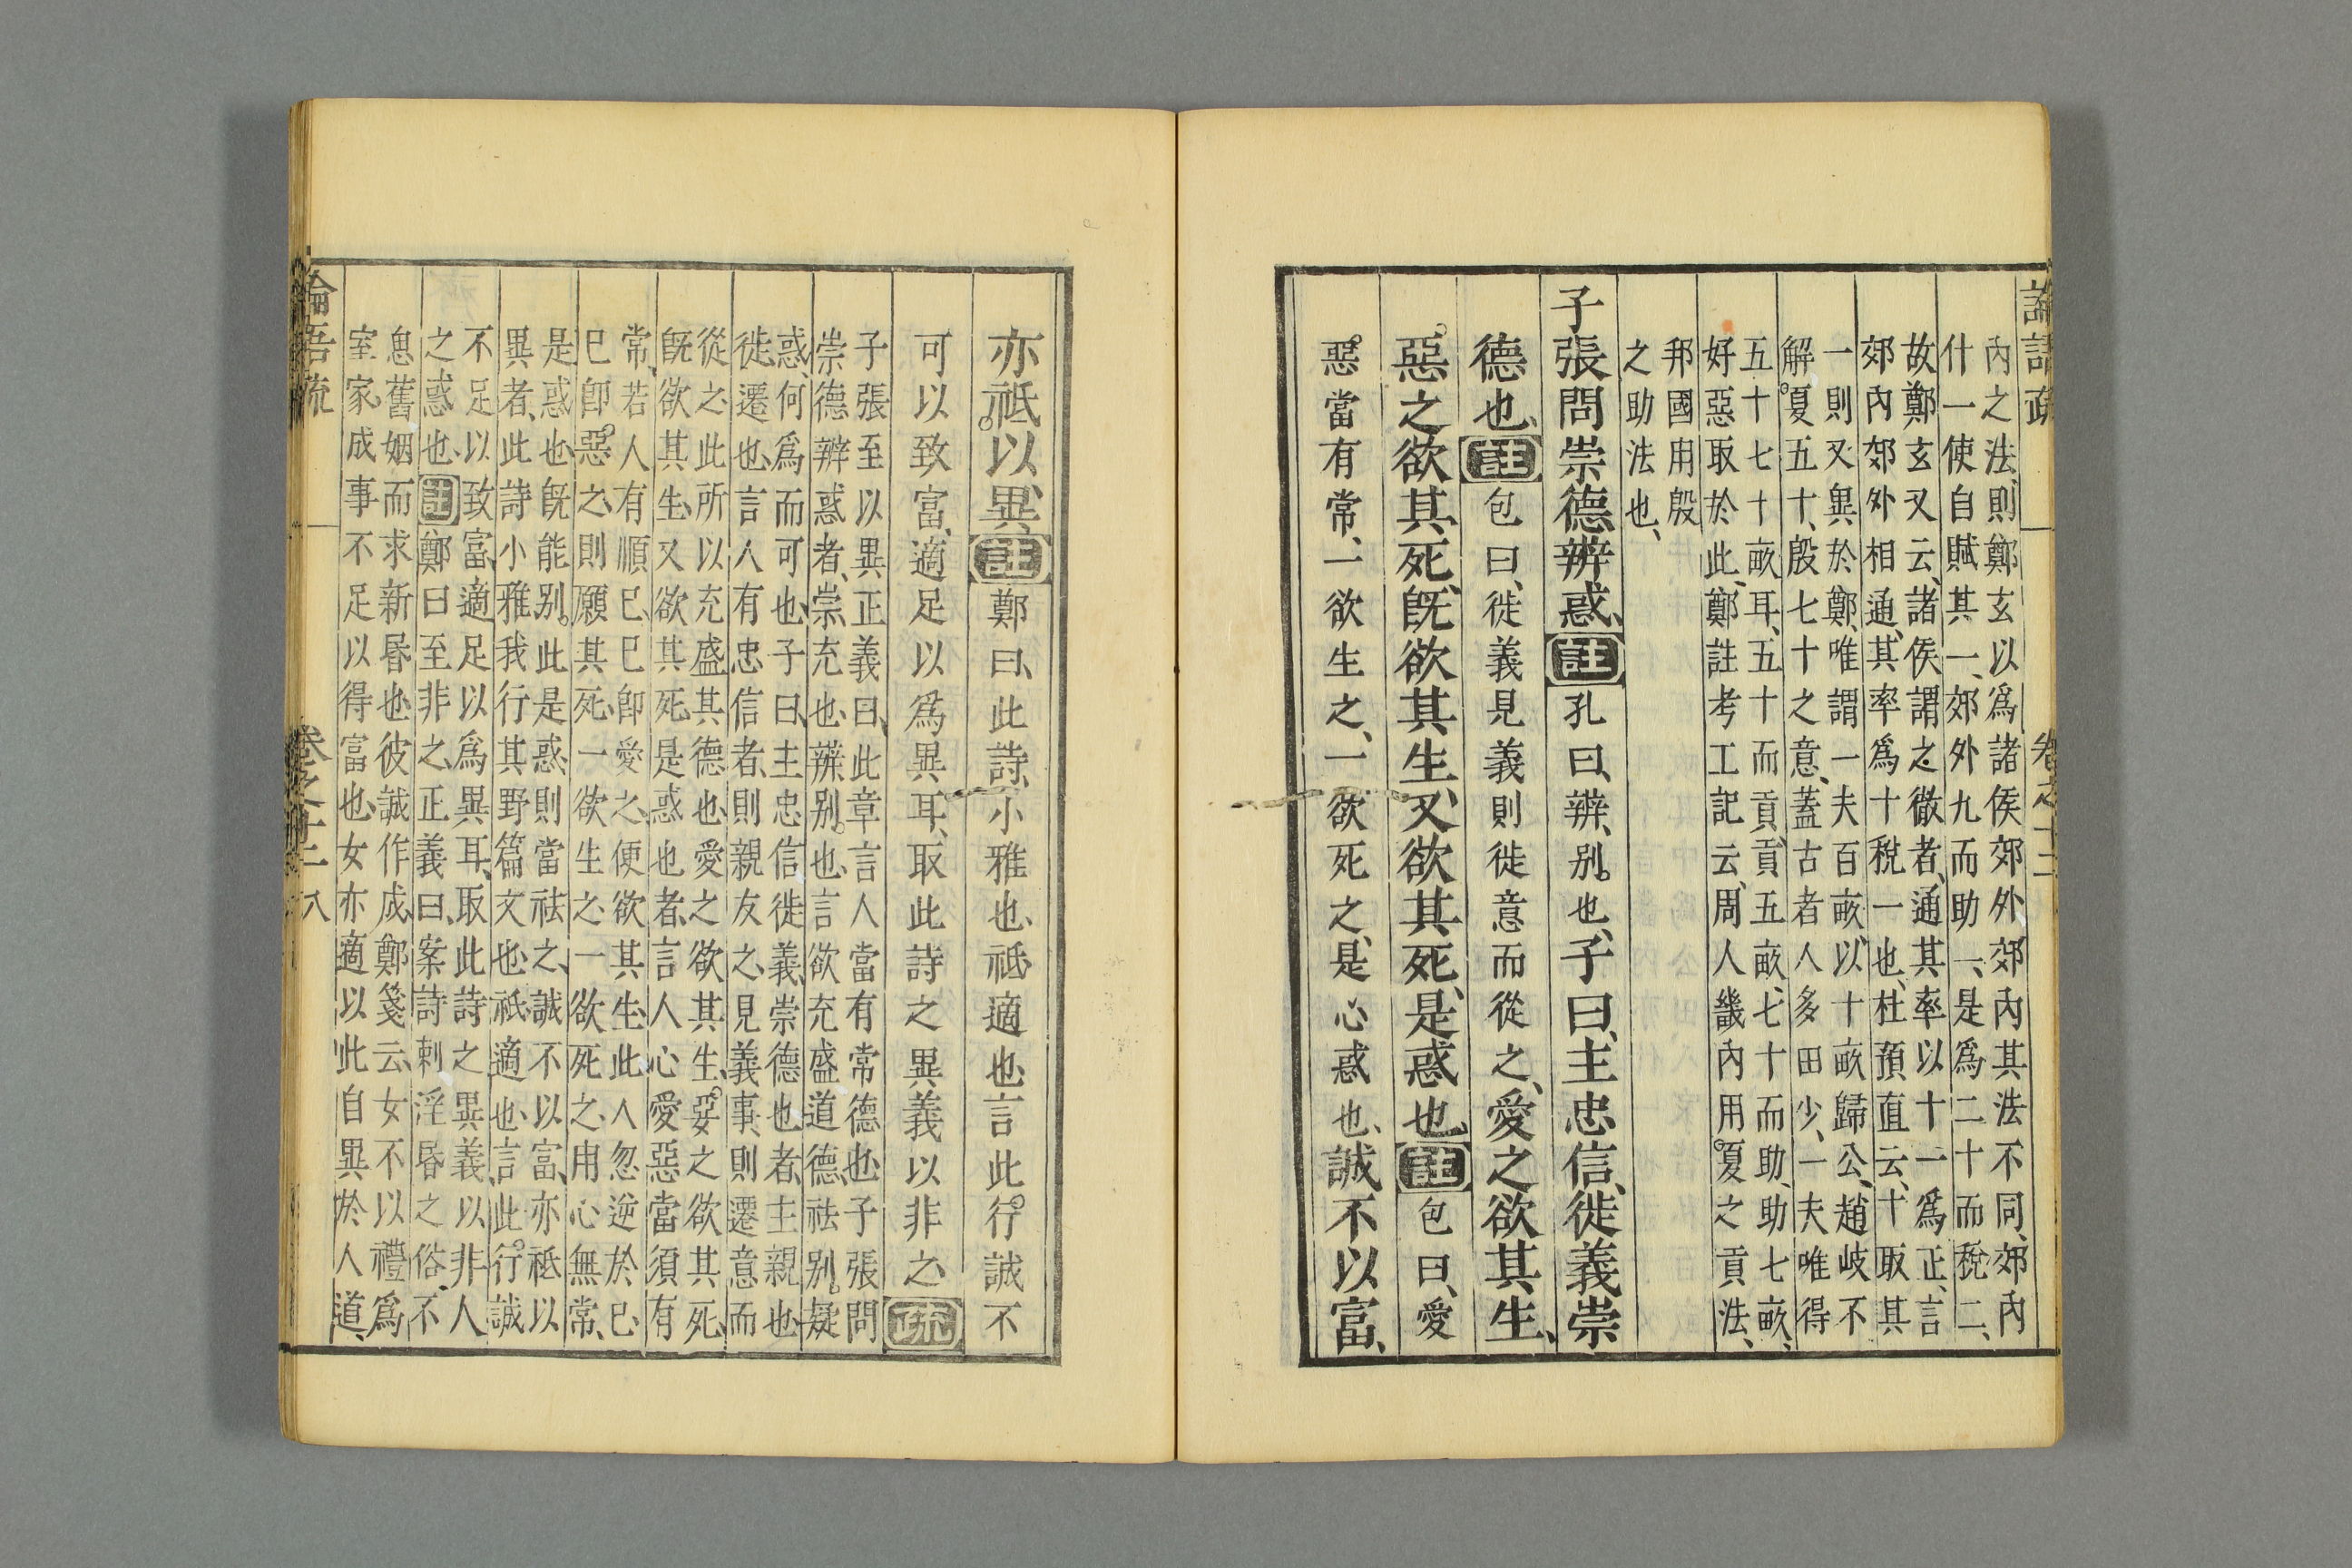 論語疏
卷之十二
內之法、則鄭玄以爲諸侯郊外郊內其法不同、郊內
什一使自賦其一、郊外九而助一、是爲二十而稅二、
故鄭玄又云、諸侯謂之徹者、通其率以十一爲正、言
郊內郊外相通、其率爲十稅一也、杜預直云、十取其
一則又異於鄭、唯謂一夫百畝、以十畝歸公、趙岐不
解夏五十、殷七十之意、蓋古者人多田少、一夫唯得
五十七十畝耳、五十而貢、貢五畝、七十而助、助七畝、
好惡取於此、鄭註考工記云、周人畿內用夏之貢法、
邦國用殷
之助法也、
子張問崇德辨惑、註孔曰、辨、別也、子曰、主忠信、徙義崇
德也、註包曰、徙義見義則徙意而從之、愛之欲其生、
惡之欲其死、旣欲其生、又欲其死、是惑也、註包曰、愛
惡當有常、一欲生之、一欲死之、是心惑也、誠不以富、
亦祇以異、註鄭曰、此詩小雅也、祇適也、言此行誠不
可以致富、適足以爲異耳、取此詩之異義以非之、疏
子張至以異正義曰、此章言人當有常德也、子張問
崇德辨惑者、崇充也、辨別也、言欲充盛道德、祛別疑
惑、何爲而可也、子曰、主忠信徙義、崇德也者、主親也
徙、遷也、言人有忠信者、則親友之、見義事、則遷意而
從之、此所以充盛其德也、愛之欲其生、惡之欲其死、
旣欲其生、又欲其死、是惑也者、言人心愛惡當須有
常、若人有順巳、巳卽愛之、便欲其生、此人忽逆於巳、
巳卽惡之、則願其死、一欲生之、一欲死之、用心無常、
是惑也、旣能別此是惑、則當祛之、誠不以富、亦祇以
異者、此詩小雅我行其野篇文也、祇適也、言此行誠
不足以致富、適足以爲異耳、取此詩之異義、以非人
之惑也、註鄭曰至非之、正義曰、案詩刺淫昏之俗、不
思舊姻而求新昏也、彼誠作成、鄭箋云、女不以禮爲
室家、成事不足以得富也、女亦適以此自異於人道、
論語疏
卷之十二
八